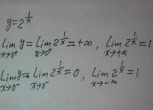 y=2^{1/x}
lim_{x→0⁺} y = lim_{x→0⁺} 2^{1/x} = +∞ , lim_{x→+∞} 2^{1/x} = 1
lim_{x→0⁻} y = lim_{x→0⁻} 2^{1/x} = 0 , lim_{x→-∞} 2^{1/x} = 1